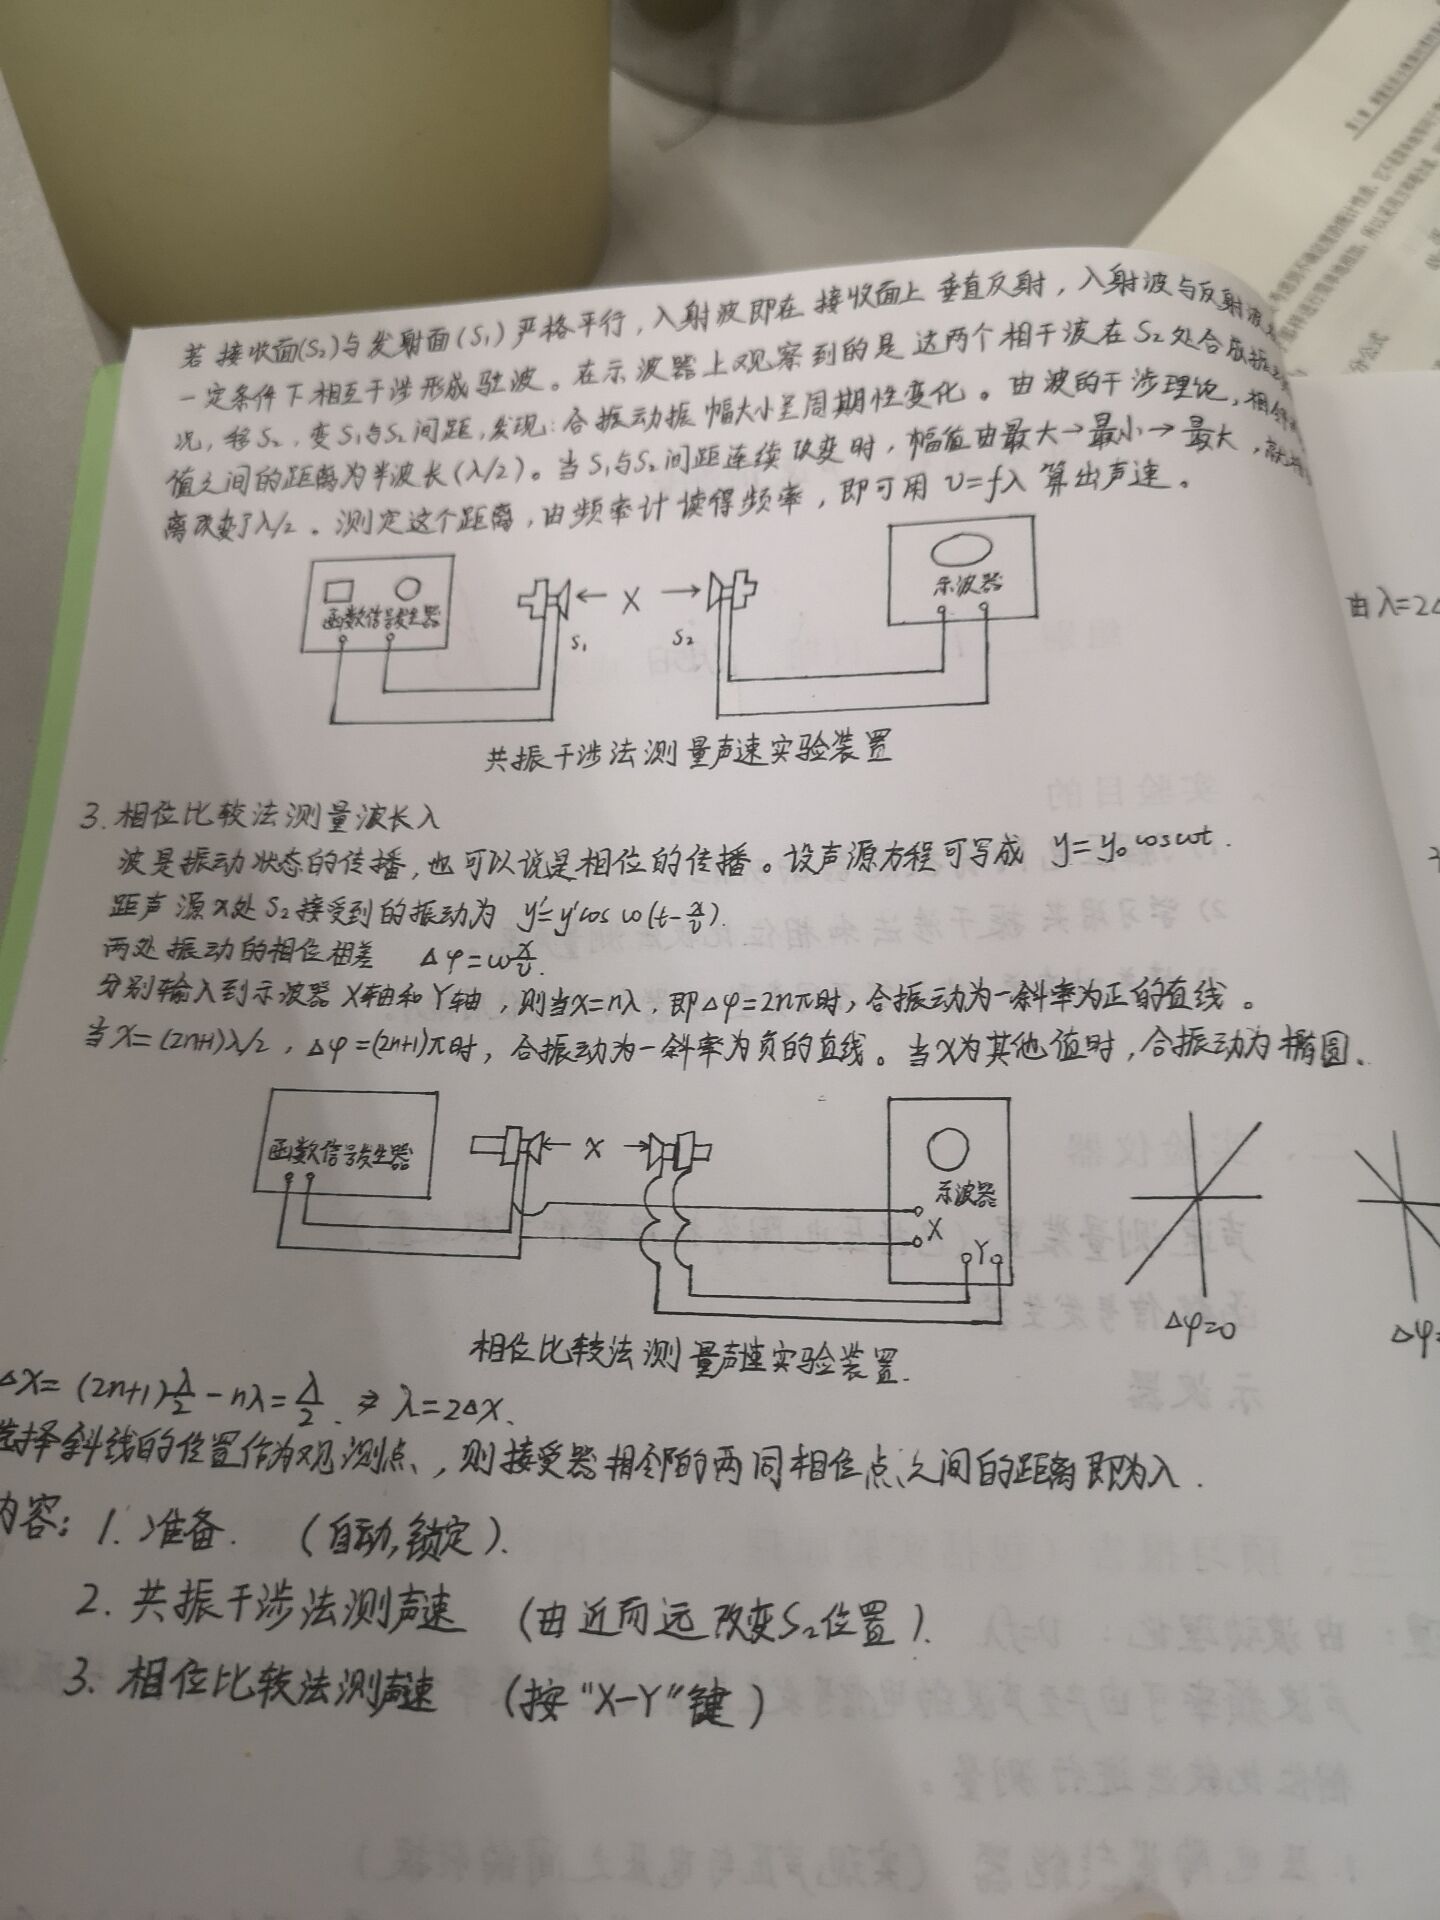 若接收面(S₂)与发射面(S₁)严格平行，入射波即在接收面上垂直反射，入射波与反射波
一定条件下相互干涉形成驻波。在示波器上观察到的是这两个相干波在S₂处合成振动
况，移S₂，变S₁与S₂间距，发现：合振动振幅大小呈周期性变化。由波的干涉理论，相邻
值之间的距离为半波长(λ/2)。当S₁与S₂间距连续改变时，幅值由最大→最小→最大，
离改变了λ/2。测定这个距离，由频率计读得频率，即可用 v=fλ 算出声速。
函数信号发生器
S₁
← X →
S₂
示波器
共振干涉法测量声速实验装置
由λ=2Δ
3.相位比较法测量波长λ
波是振动状态的传播，也可以说是相位的传播。设声源方程可写成 y=y₀cosωt.
距声源x处S₂接受到的振动为 y'=y'cosω(t-x/v).
两处振动的相位相差 Δφ=ωx/v.
分别输入到示波器X轴和Y轴，则当x=nλ，即Δφ=2nπ时，合振动为一斜率为正的直线。
当x=(2n+1)λ/2，Δφ=(2n+1)π时，合振动为一斜率为负的直线。当x为其他值时，合振动为椭圆.
函数信号发生器
← X →
示波器
X
Y
Δφ=0
Δφ=
相位比较法测量声速实验装置.
Δx=(2n+1)λ/2-nλ=λ/2. ⇒ λ=2Δx.
选择斜线的位置作为观测点，则接受器相邻的两同相位点之间的距离即为λ.
内容：1.准备. (自动,锁定).
2.共振干涉法测声速 (由近而远改变S₂位置).
3.相位比较法测声速 (按"X-Y"键)